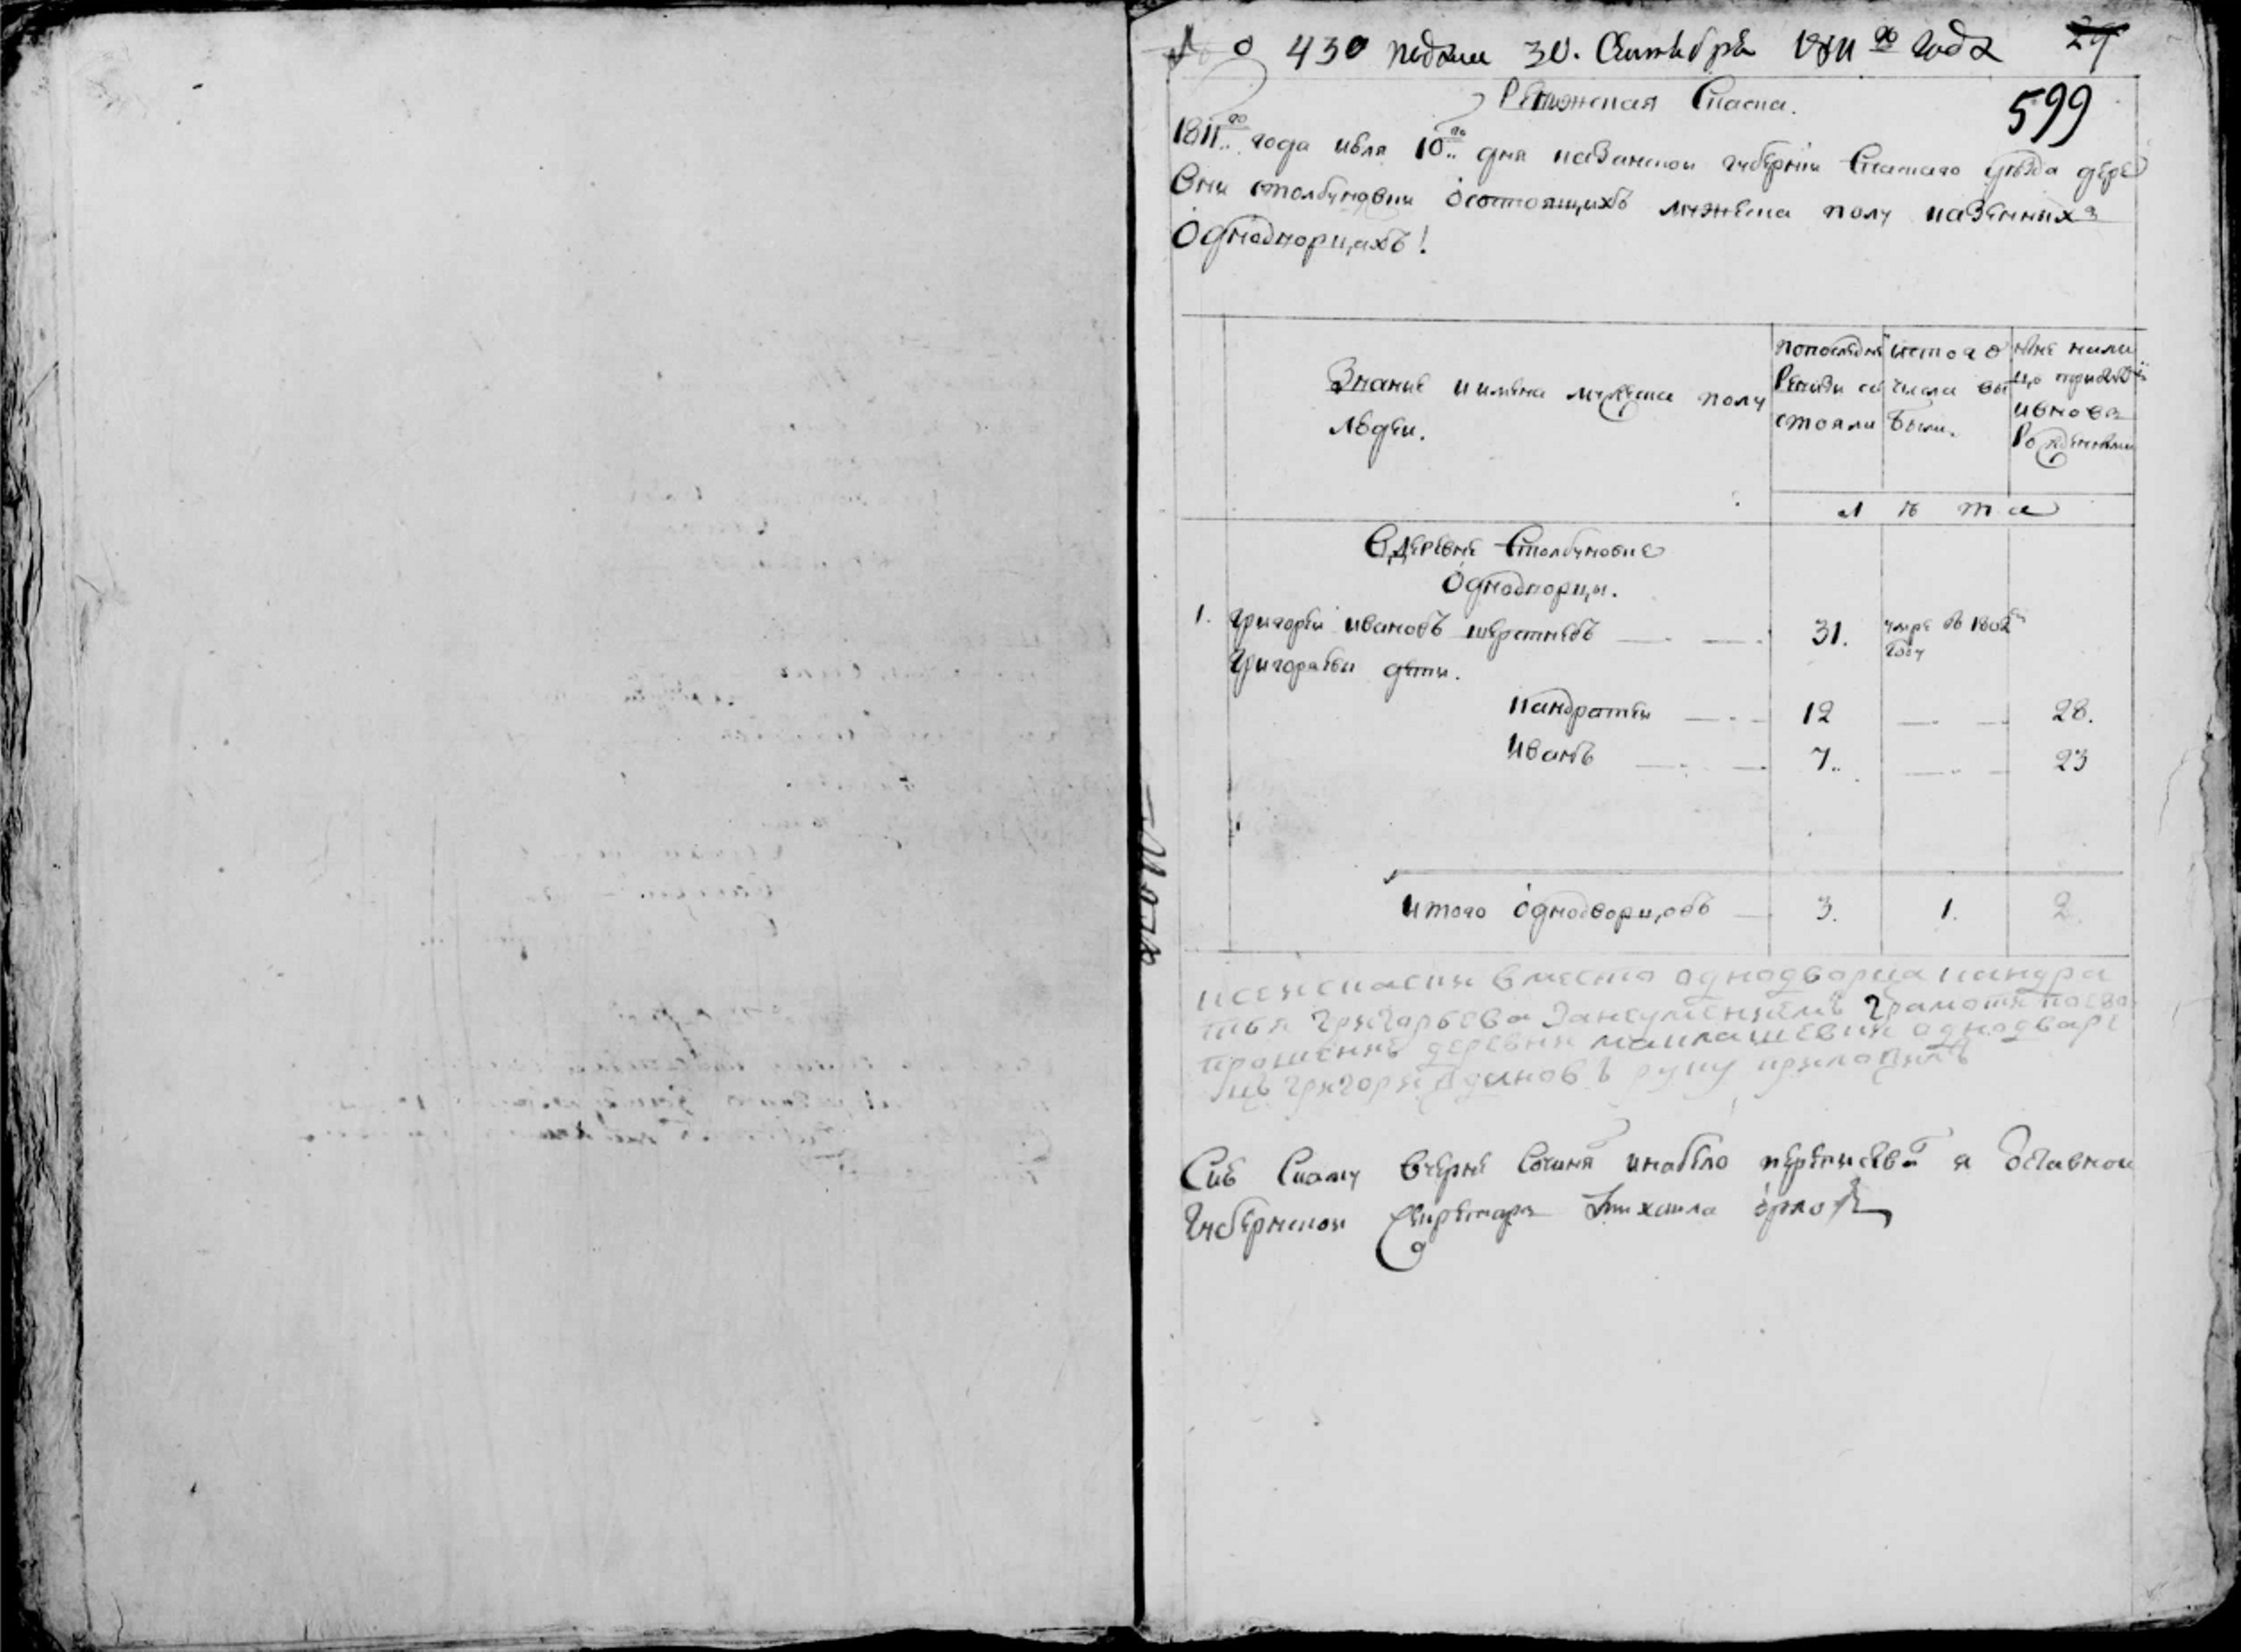 № 430 подан 30. Сентября 1811го года 29
599
Ревижская Скаска.
1811го года июля 10го дня казанской губернии Спаскаго уезда дере
вни столбуновки о состоящихъ мужеска полу казенныхъ
однодворцахъ!
Звание и имена мужеска полу
людеи.
попоследнеи
Ревизи со
стояли
ис того
числа вы
были.
ныне на ли
цо
и внова
Рожденными
л ѣ т а
В деревне Столбуновке
однодворцы.
1. Григореи ивановъ шерстневъ 31. умре въ 1802м году
Григорьевы дети.
кандратеи 12 28.
иванъ 7. 23
итого однодворцовъ 3. 1. 2.
к сей скаски вместо однодворца кандра
тья григорьева за неумениемъ грамоти по ево
прошению деревни однодвор
цъ григореи руку приложилъ
Сию скаску вчерне сочиня и набело переписавъ я оставнои
губернскои секретарь михаила